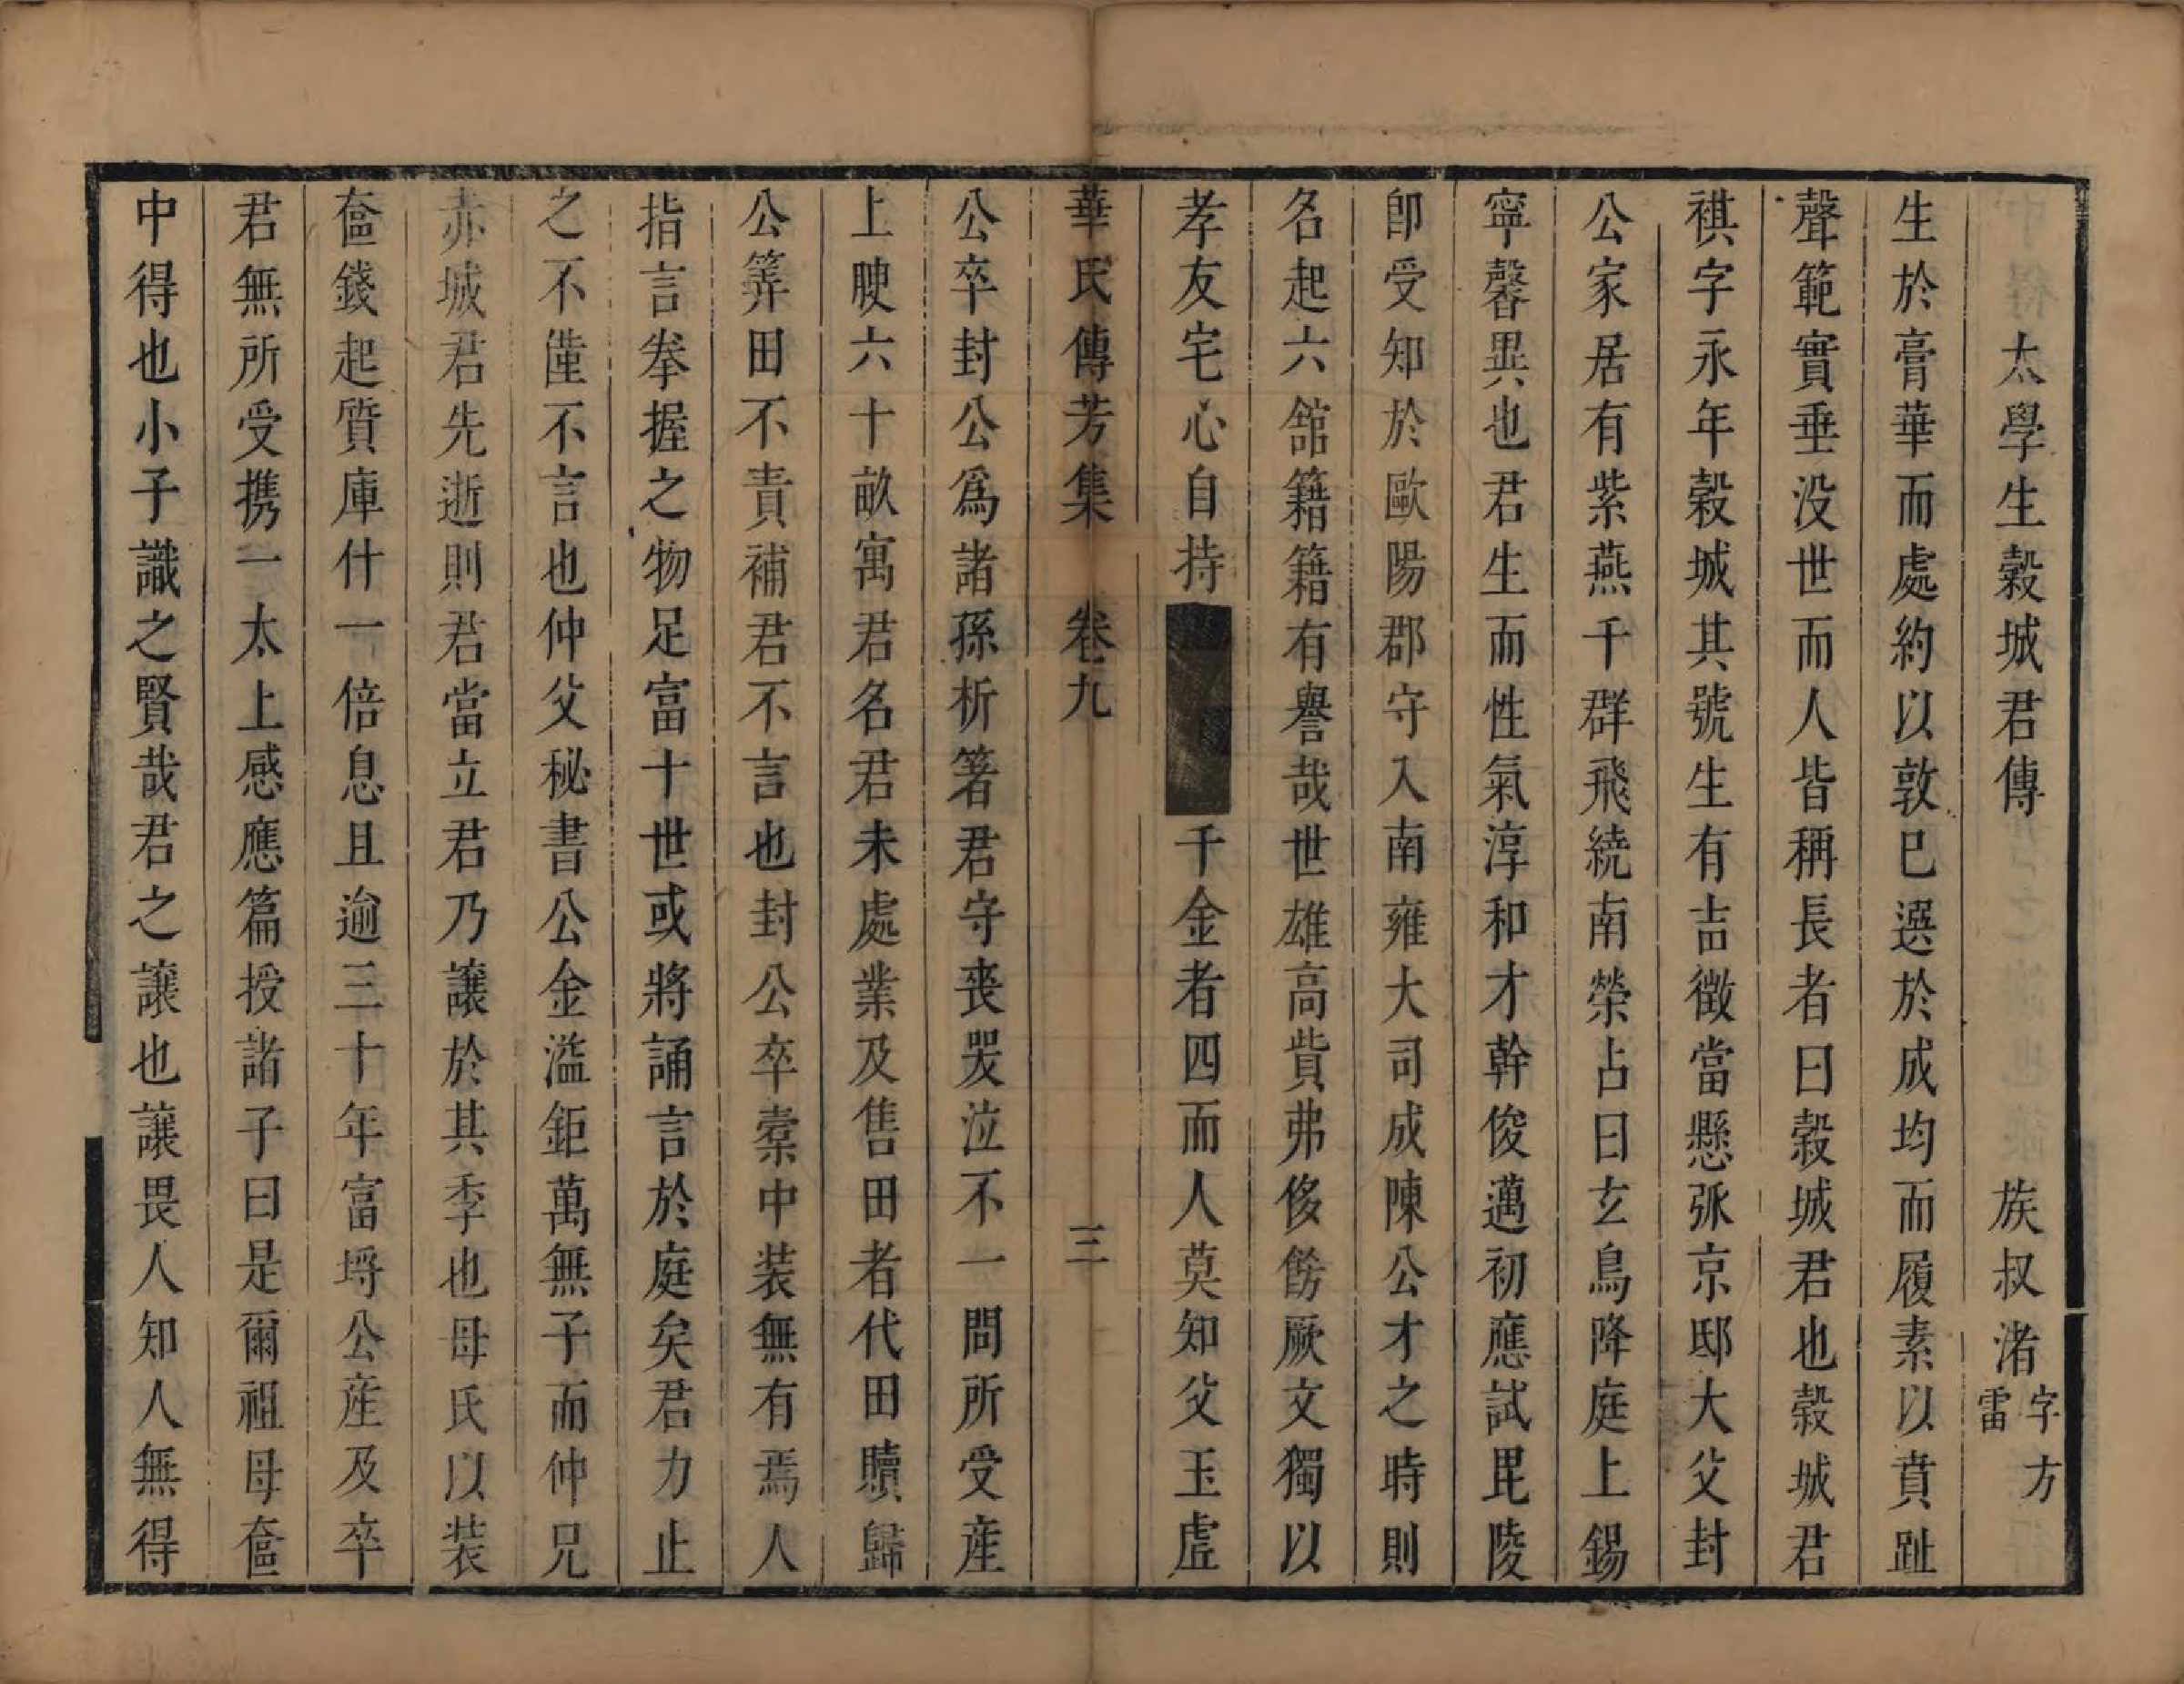 太學生穀城君傳　族叔渚字方雷
生於膏華而處約以敦巳選於成均而履素以賁趾
聲範實垂没世而人皆稱長者曰穀城君也穀城君
祺字永年穀城其號生有吉徵當懸弧京邸大父封
公家居有紫燕千群飛繞南榮占曰玄鳥降庭上錫
寧馨異也君生而性氣淳和才幹俊邁初應試毘陵
卽受知於歐陽郡守入南雍大司成陳公才之時則
名起六舘籍籍有譽哉世雄高貲弗侈餝厥文獨以
孝友宅心自持千金者四而人莫知父玉虛
華氏傳芳集　卷九　三
公卒封公爲諸孫析箸君守丧哭泣不一問所受産
上腴六十畝寓君名君未處業及售田者代田贖歸
公筭田不責補君不言也封公卒橐中装無有焉人
指言拳握之物足富十世或將誦言於庭矣君力止
之不僅不言也仲父秘書公金溢鉅萬無子而仲兄
赤城君先逝則君當立君乃讓於其季也母氏以装
奩錢起質庫什一倍息且逾三十年富埒公産及卒
君無所受携一太上感應篇授諸子曰是爾祖母奩
中得也小子識之賢哉君之讓也讓畏人知人無得